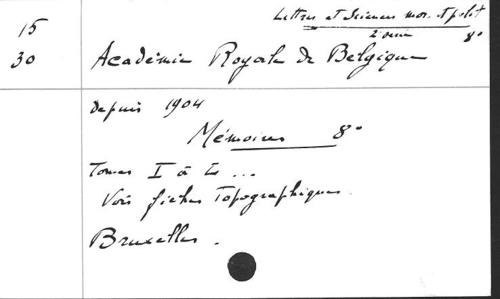 15
30
Lettres et Sciences mor. et polit
2e serie 8°
Académie Royale de Belgique
depuis 1904
Mémoires 8°
Tomes I à ...
Voir fiches Topographiques.
Bruxelles.